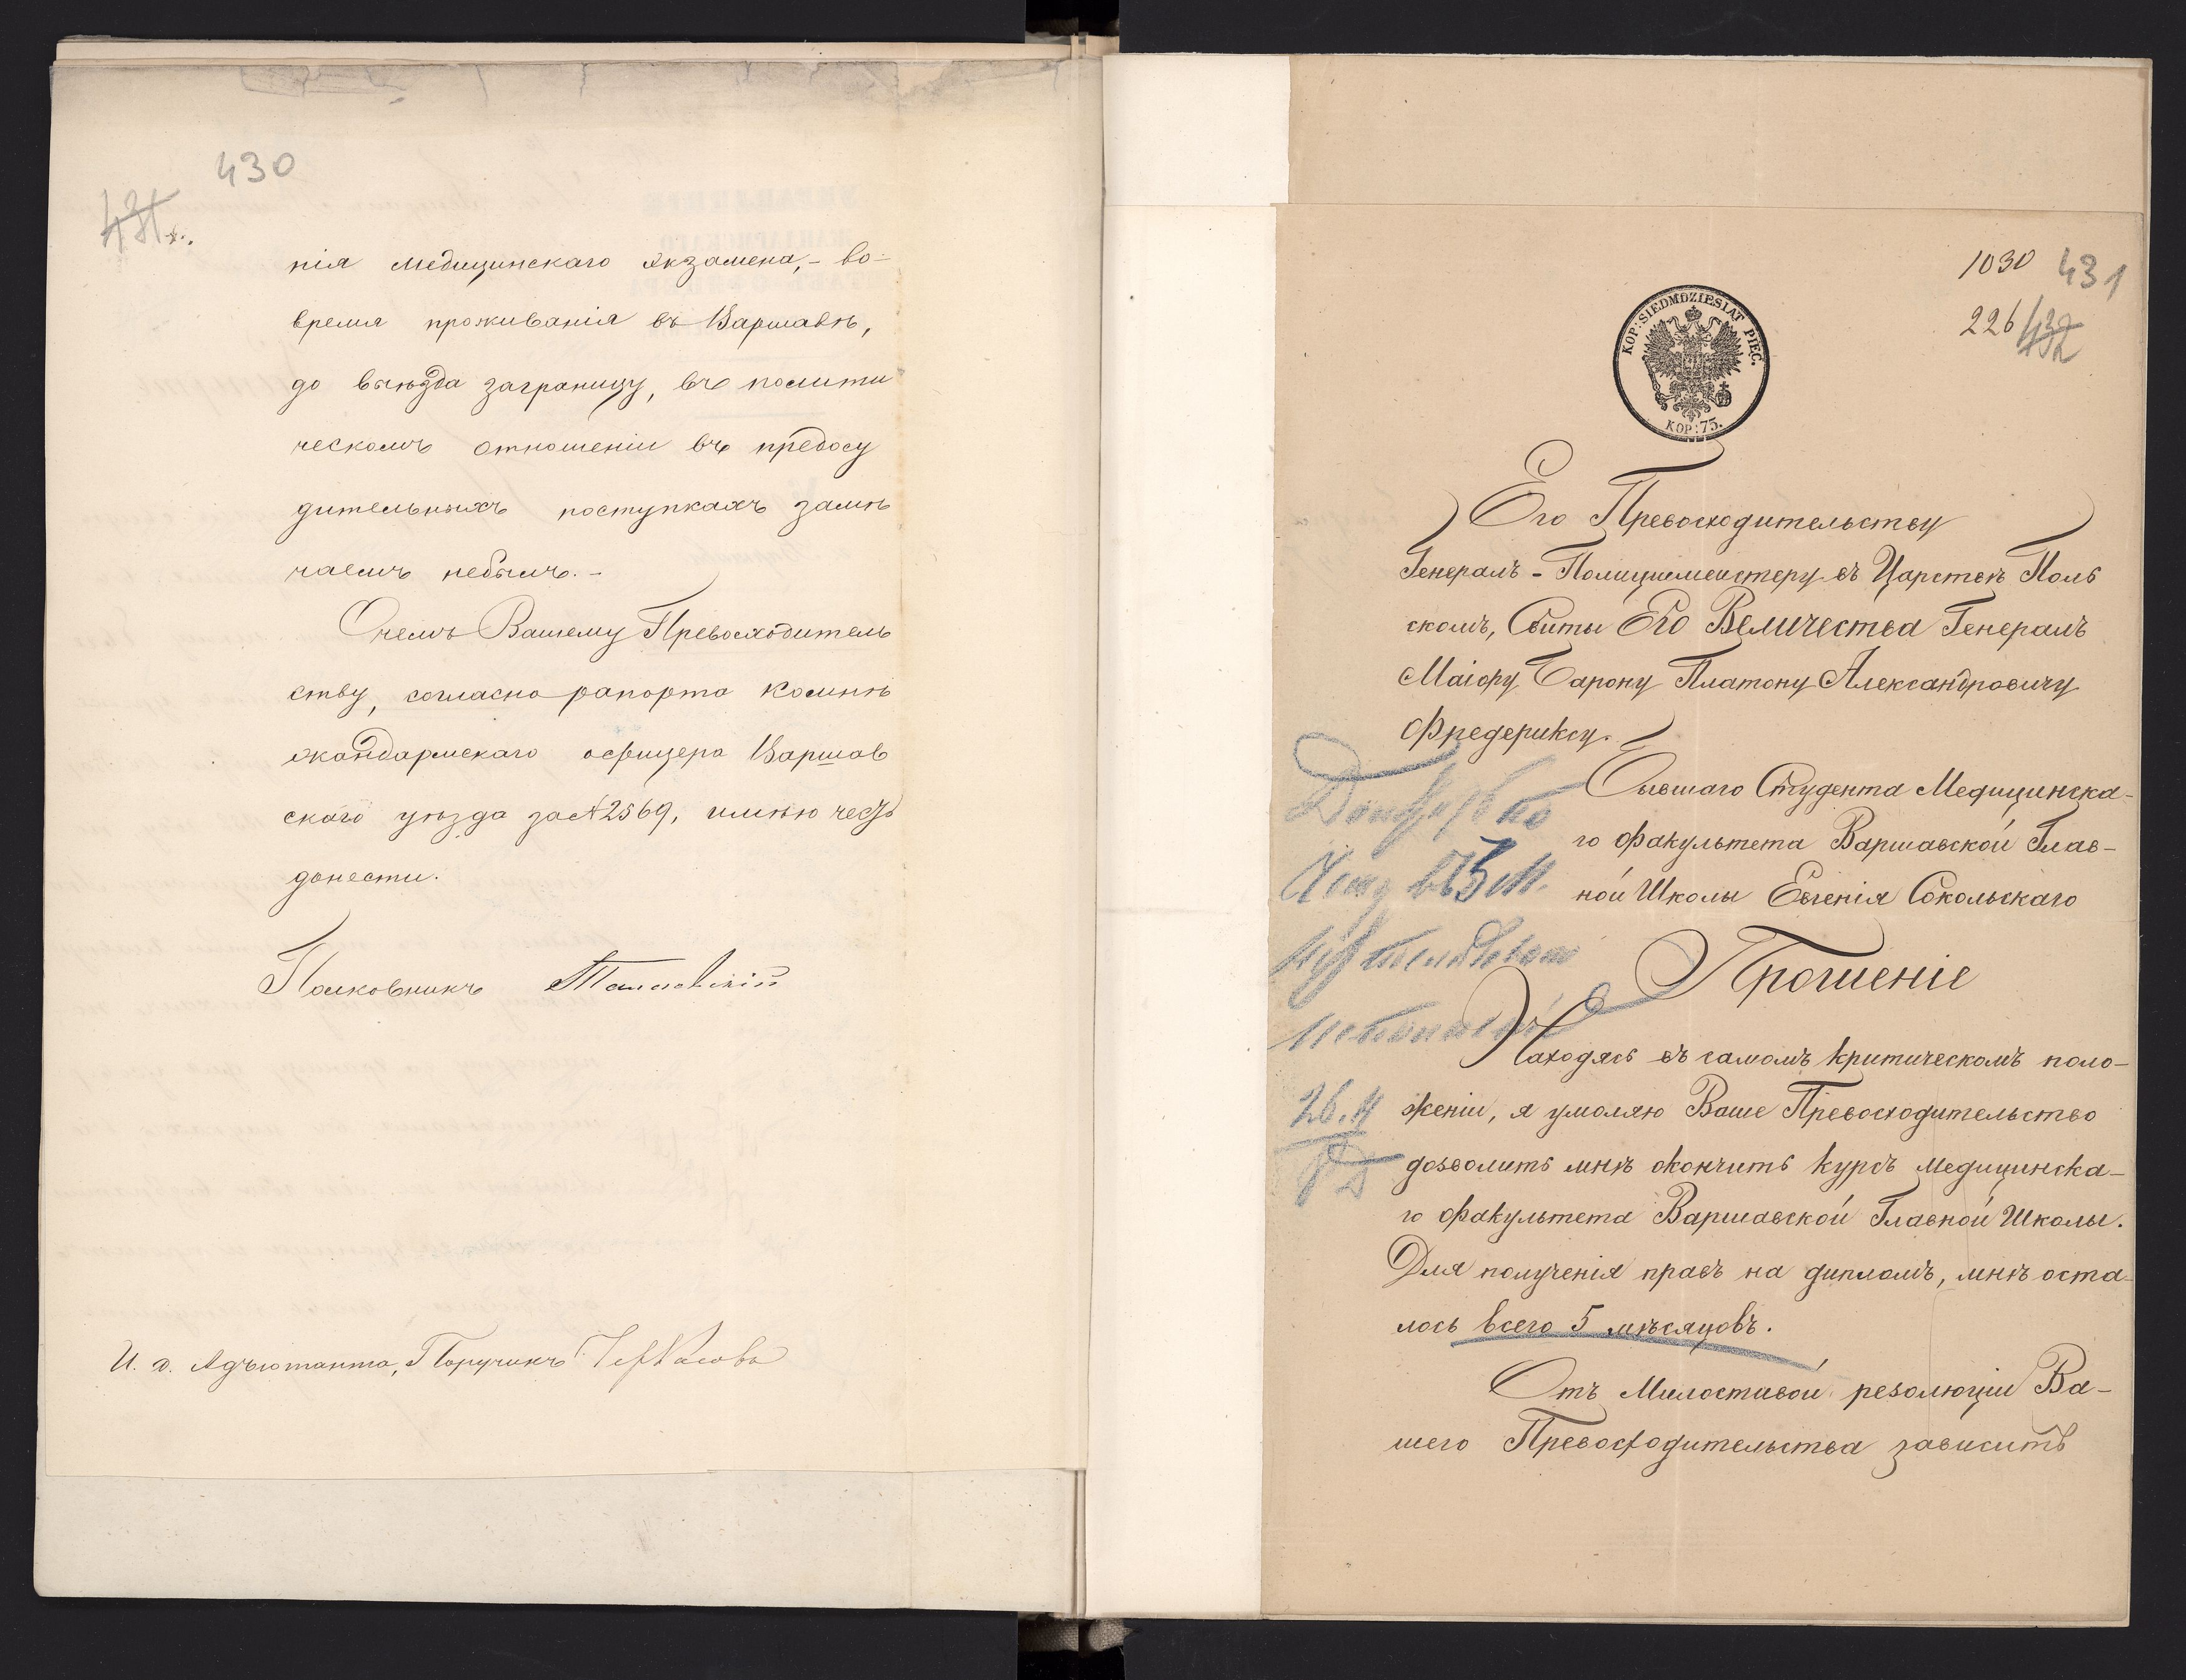 430
431
нія медицинскаго экзамена,- во-
время проживанія въ Варшавѣ,
до выѣзда заграницу, въ полити
ческомъ отношеніи въ предосу
дительныхъ поступкахъ замѣ
чаемъ небылъ.-
Очемъ Вашему Превосходитель
ству, согласно рапорта
жандармскаго офицера Варшав
скаго уѣзда за № 2569, имѣю честь
донести.
Полковникъ
И. д. Адъютанта, Поручикъ
1030 431
226 432
KOP: SIEDMDZIESIĄT PIĘĆ.
KOP: 75.
Его Превосходительству
Генералъ-Полицмейстеру въ Царствѣ Поль
скомъ, Свиты Его Величества Генералъ
Маіору Барону Платону Александровичу
Фредериксу.
Бывшаго Студента Медицинска-
го факультета Варшавской Глав-
ной Школы Евгенія Сокольскаго
Прошеніе
Находясь въ самомъ критическомъ поло-
женіи, я умоляю Ваше Превосходительство
дозволить мнѣ окончить курсъ медицинска-
го факультета Варшавской Главной Школы.
Для полученія правъ на дипломъ, мнѣ оста-
лось всего 5 мѣсяцовъ.
Отъ Милостивой резолюціи Ва-
шего Превосходительства зависитъ